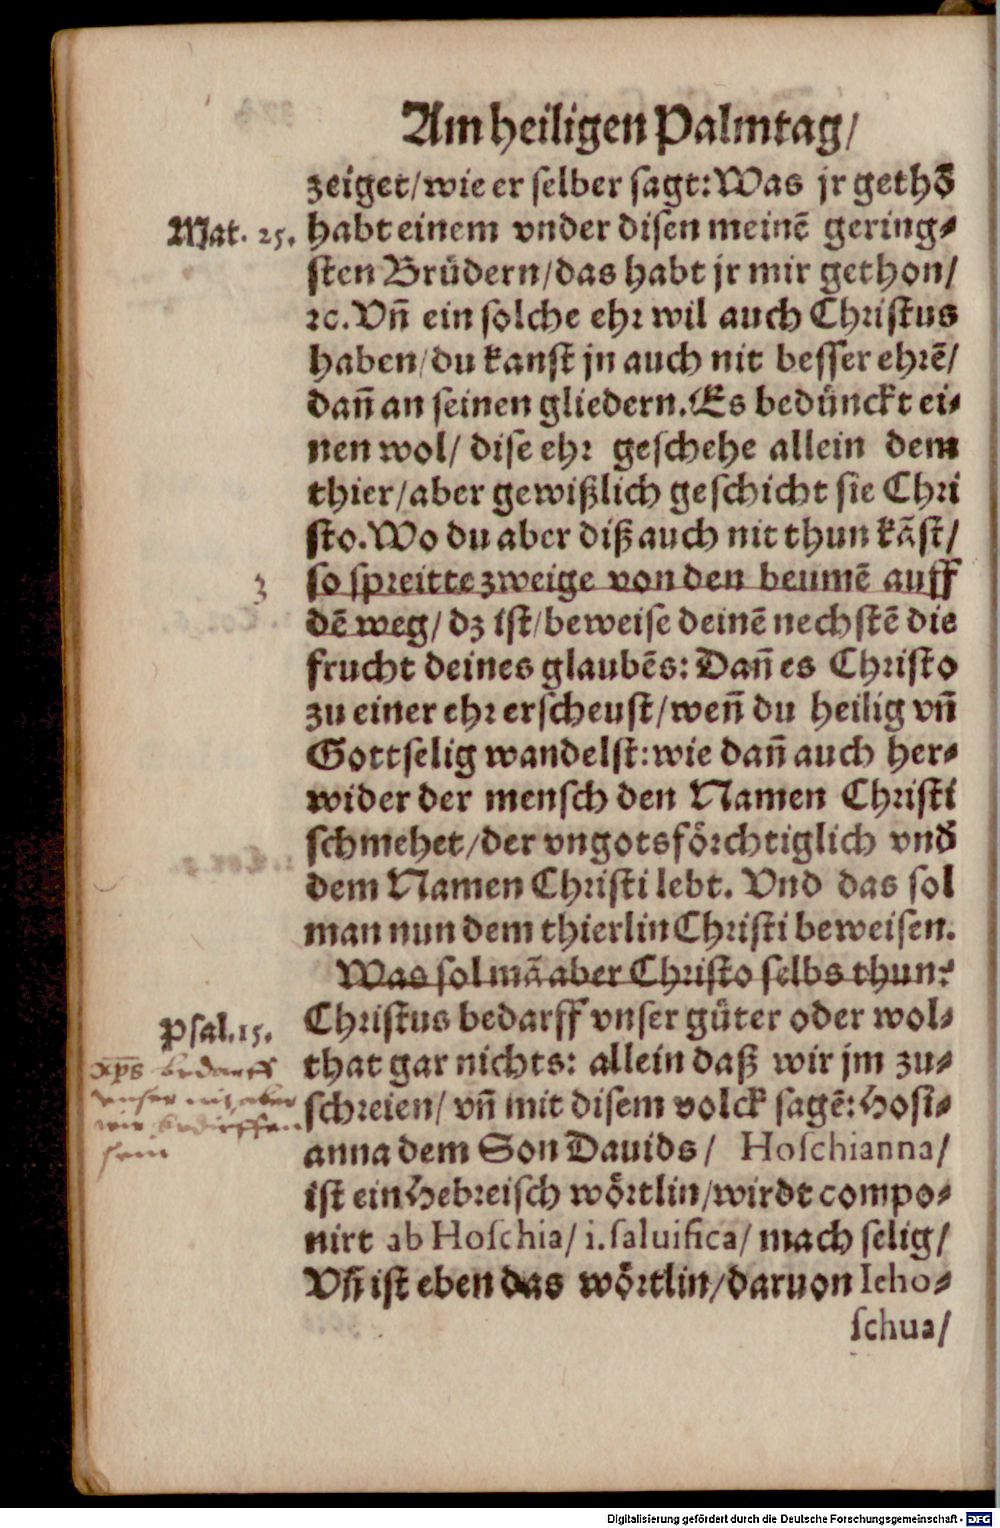 Am heiligen Palmtag/
zeiget/wie er selber sagt: Was jr gethõ
Mat. 25. habt einem vnder disen meinẽ gering⸗
sten Brüdern/das habt jr mir gethon/
ꝛc. Vñ ein solche ehr wil auch Christus
haben/du kanst jn auch nit besser ehrẽ/
dañ an seinen gliedern. Es bedünckt ei⸗
nen wol/ dise ehr geschehe allein dem
thier/aber gewißlich geschicht sie Chri
sto. Wo du aber diß auch nit thun kãst/
3 so spreitte zweige von den beumẽ auff
dẽ weg/ dz ist/beweise deinẽ nechstẽ die
frucht deines glaubẽs: Dañ es Christo
zu einer ehr erscheust/weñ du heilig vñ
Gottselig wandelst: wie dañ auch her⸗
wider der mensch den Namen Christi
schmehet/der vngotsförchtiglich vnd̃
dem Namen Christi lebt. Vnd das sol
man nun dem thierlin Christi beweisen.
Was sol mã aber Christo selbs thun?
Psal. 15. Christus bedarff vnser güter oder wol⸗
that gar nichts: allein daß wir jm zu⸗
schreien/ vñ mit disem volck sagẽ: Hosi⸗
anna dem Son Dauids/ Hoschianna/
ist ein Hebreisch wörtlin/wirdt compo⸗
nirt ab Hoschia/ i. saluifica/ mach selig/
Vñ ist eben das wörtlin/daruon Ieho⸗
schua/
xp̅s bedarff
vnser nit aber
wir bedürffen
sein
Digitalisierung gefördert durch die Deutsche Forschungsgemeinschaft - DFG